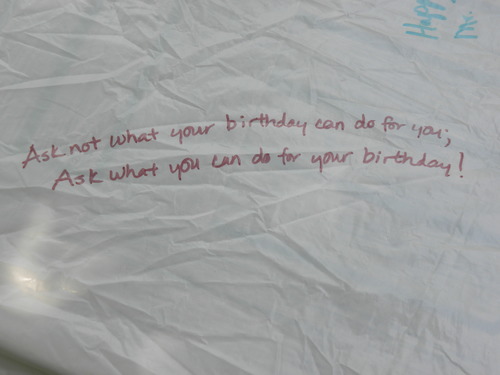 Happy
Mr.
Ask not what your birthday can do for you;
Ask what you can do for your birthday!